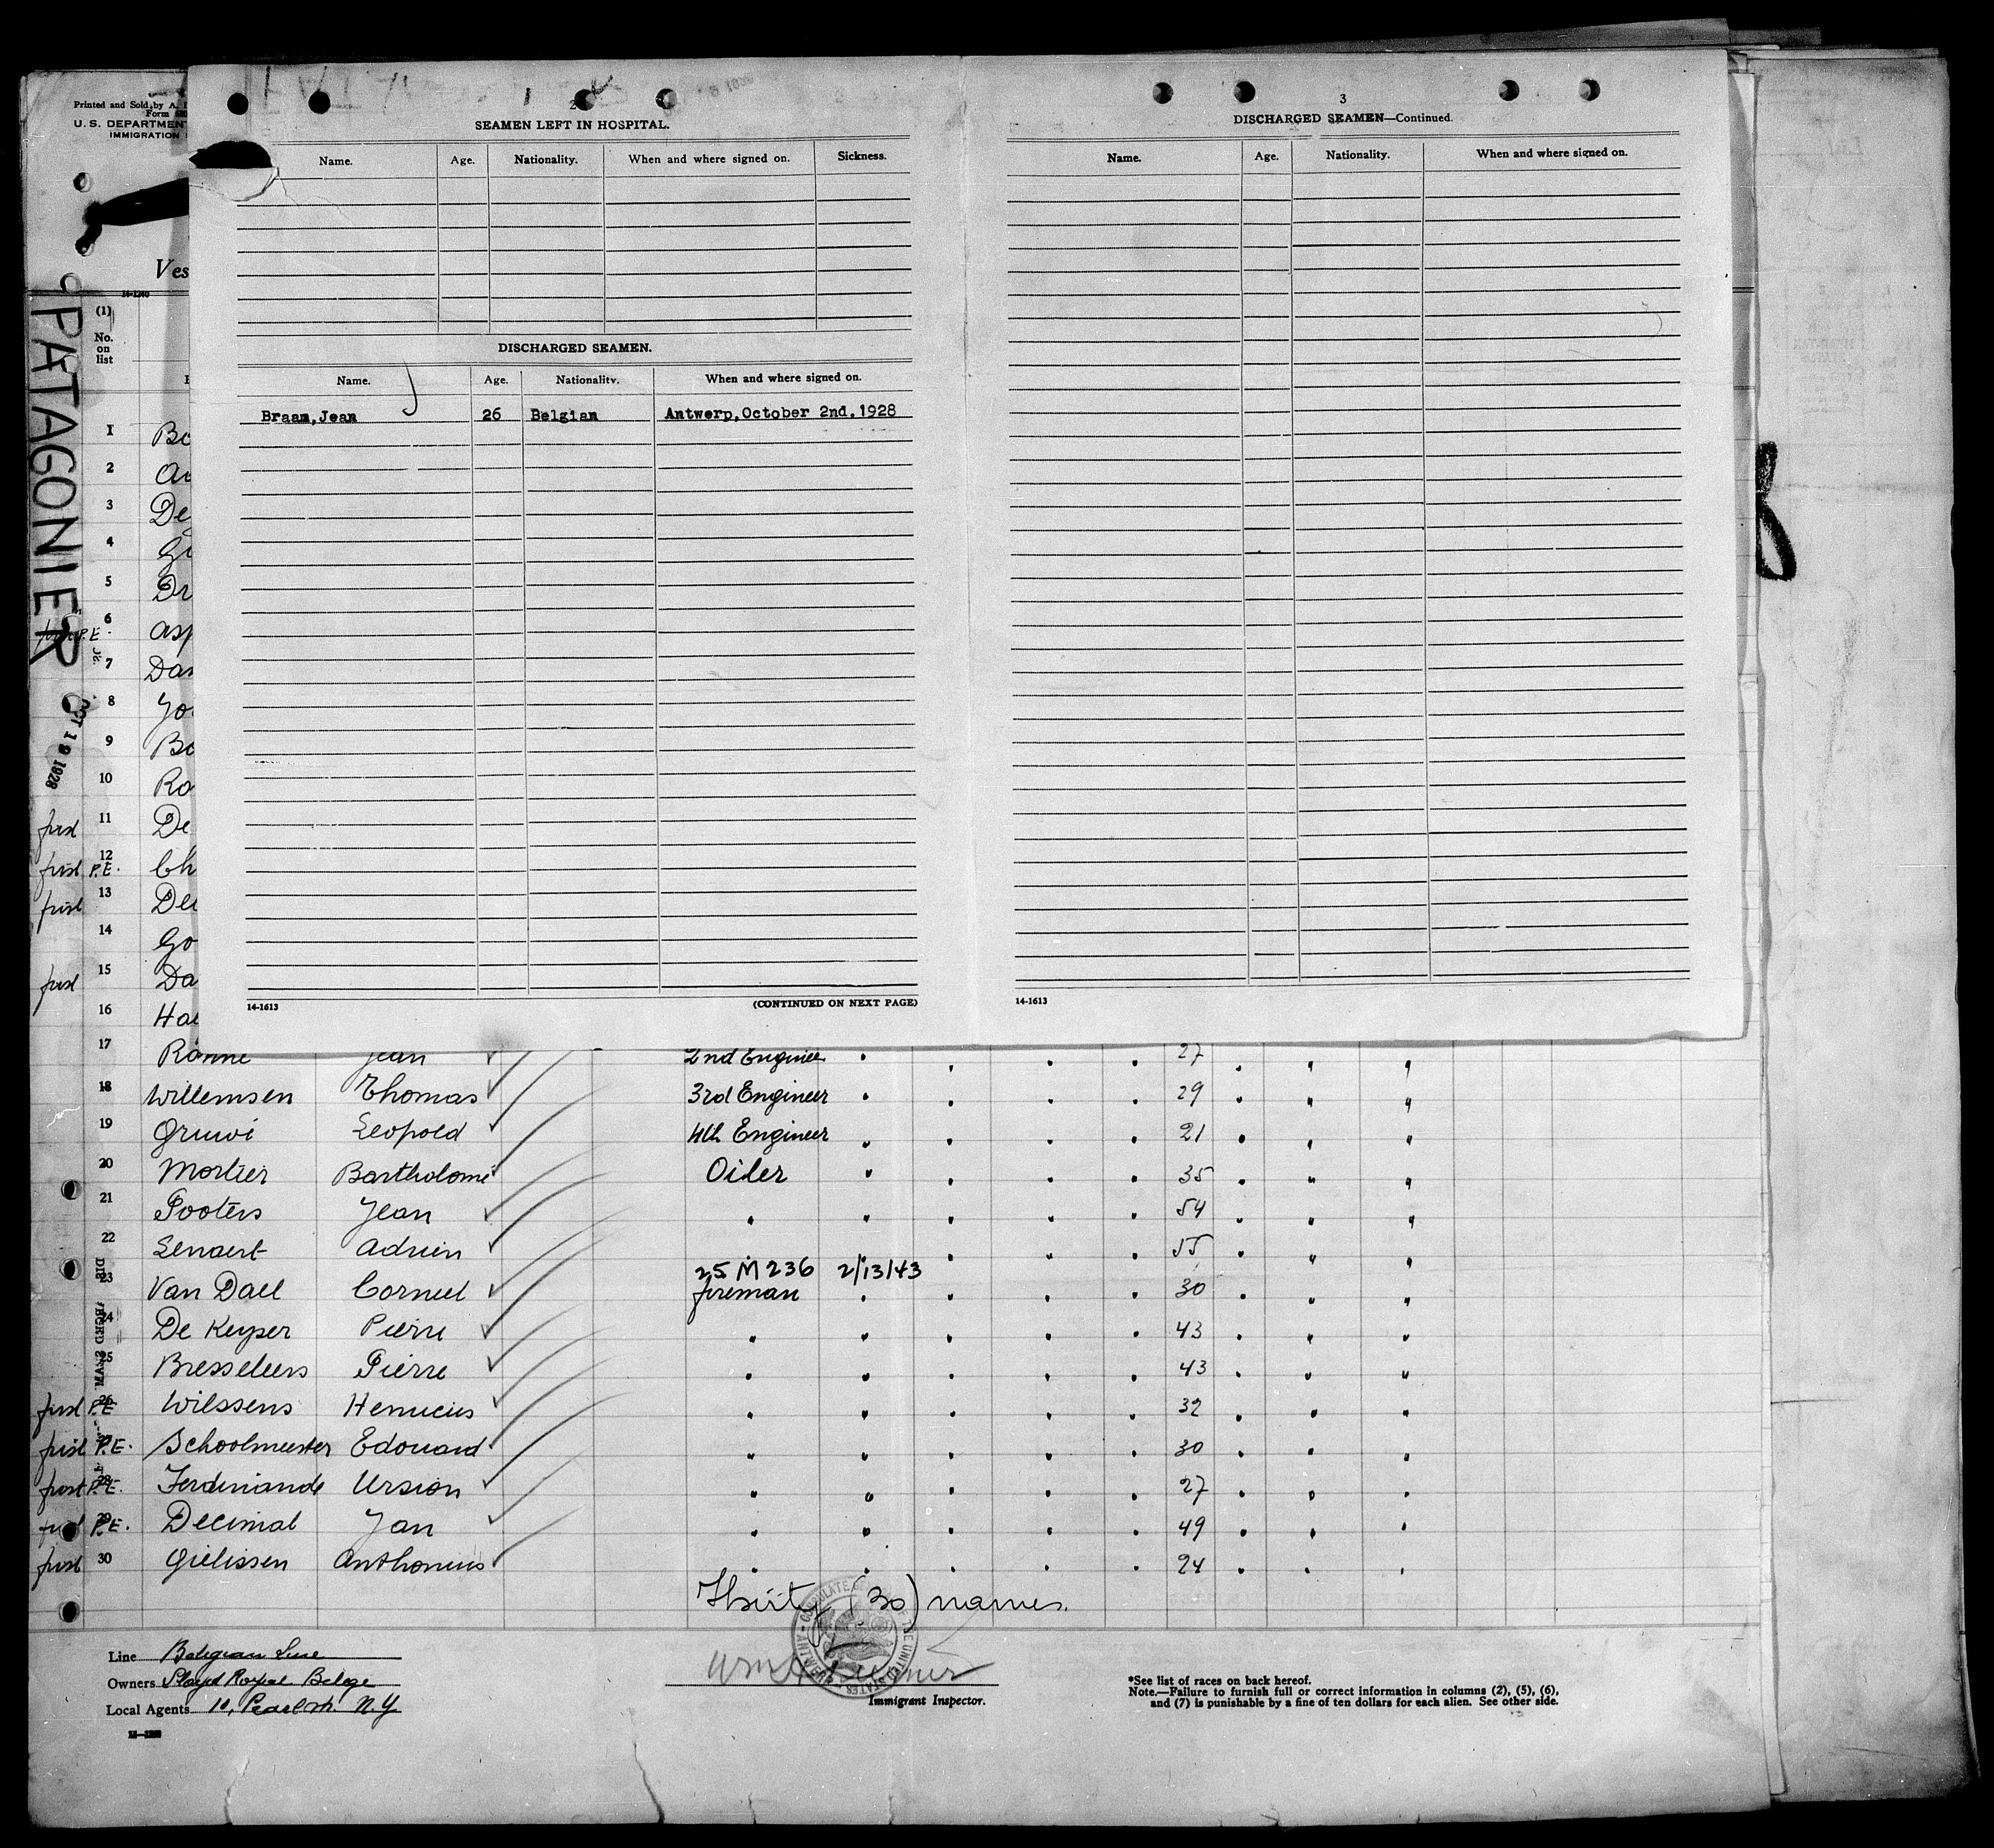 Printed and Sold by A.
Form
U. S. DEPARTMEN
IMMIGRATION
Ves
14-1240
(1)
No.
on
list
PATAGONIER
OCT 19 1928
2
SEAMEN LEFT IN HOSPITAL.
Name. Age. Nationality. When and where signed on. Sickness.
DISCHARGED SEAMEN.
Name. Age. Nationality. When and where signed on.
Braam, Jean 26 Belgian Antwerp, October 2nd. 1928
14-1613 (CONTINUED ON NEXT PAGE)
3
DISCHARGED SEAMEN—Continued.
Name. Age. Nationality. When and where signed on.
14-1613
1 Bo
2
3 De
4
5 Dr
P.E. 6 Asp
7 Dan
8 Yo
9 Bo
10 Ro
first 11 De
first P.E. 12 Ch
first 13
14 Go
first 15 Da
16 Ha
17 Ranne Jean 2nd Enginee 27
18 Willemsen Thomas 3rd Engineer " 29 " " "
19 Gruwi Leopold 4th Engineer " 21 " " "
20 Mortier Bartholomé Oiler " 35 " " "
21 Pooters Jean " " 54 " " "
22 Lenaert Adrien 55 " " "
25 M 236 2/13/43
23 Van Dael Corneel fireman " 30 " " "
24 De Keyser Pierre " " 43 " " "
25 Bresseleers Pierre " " 43 " " "
first P.E. 26 Wilssens Henricus " " 32 " " "
first P.E. Schoolmeester Edouard " " 30 " " "
first P.E. 28 Ferdinande Ursion " " 27 " " "
P.E. 29 Decimal Jan " " 49 " " "
first 30 Gielissen Anthonius " " 24 " " "
Thirty (30) names.
Line Belgian Line
Owners Lloyd Royal Belge
Local Agents 10, Pearl St. N.Y
Immigrant Inspector.
*See list of races on back hereof.
Note.—Failure to furnish full or correct information in columns (2), (5), (6),
and (7) is punishable by a fine of ten dollars for each alien. See other side.